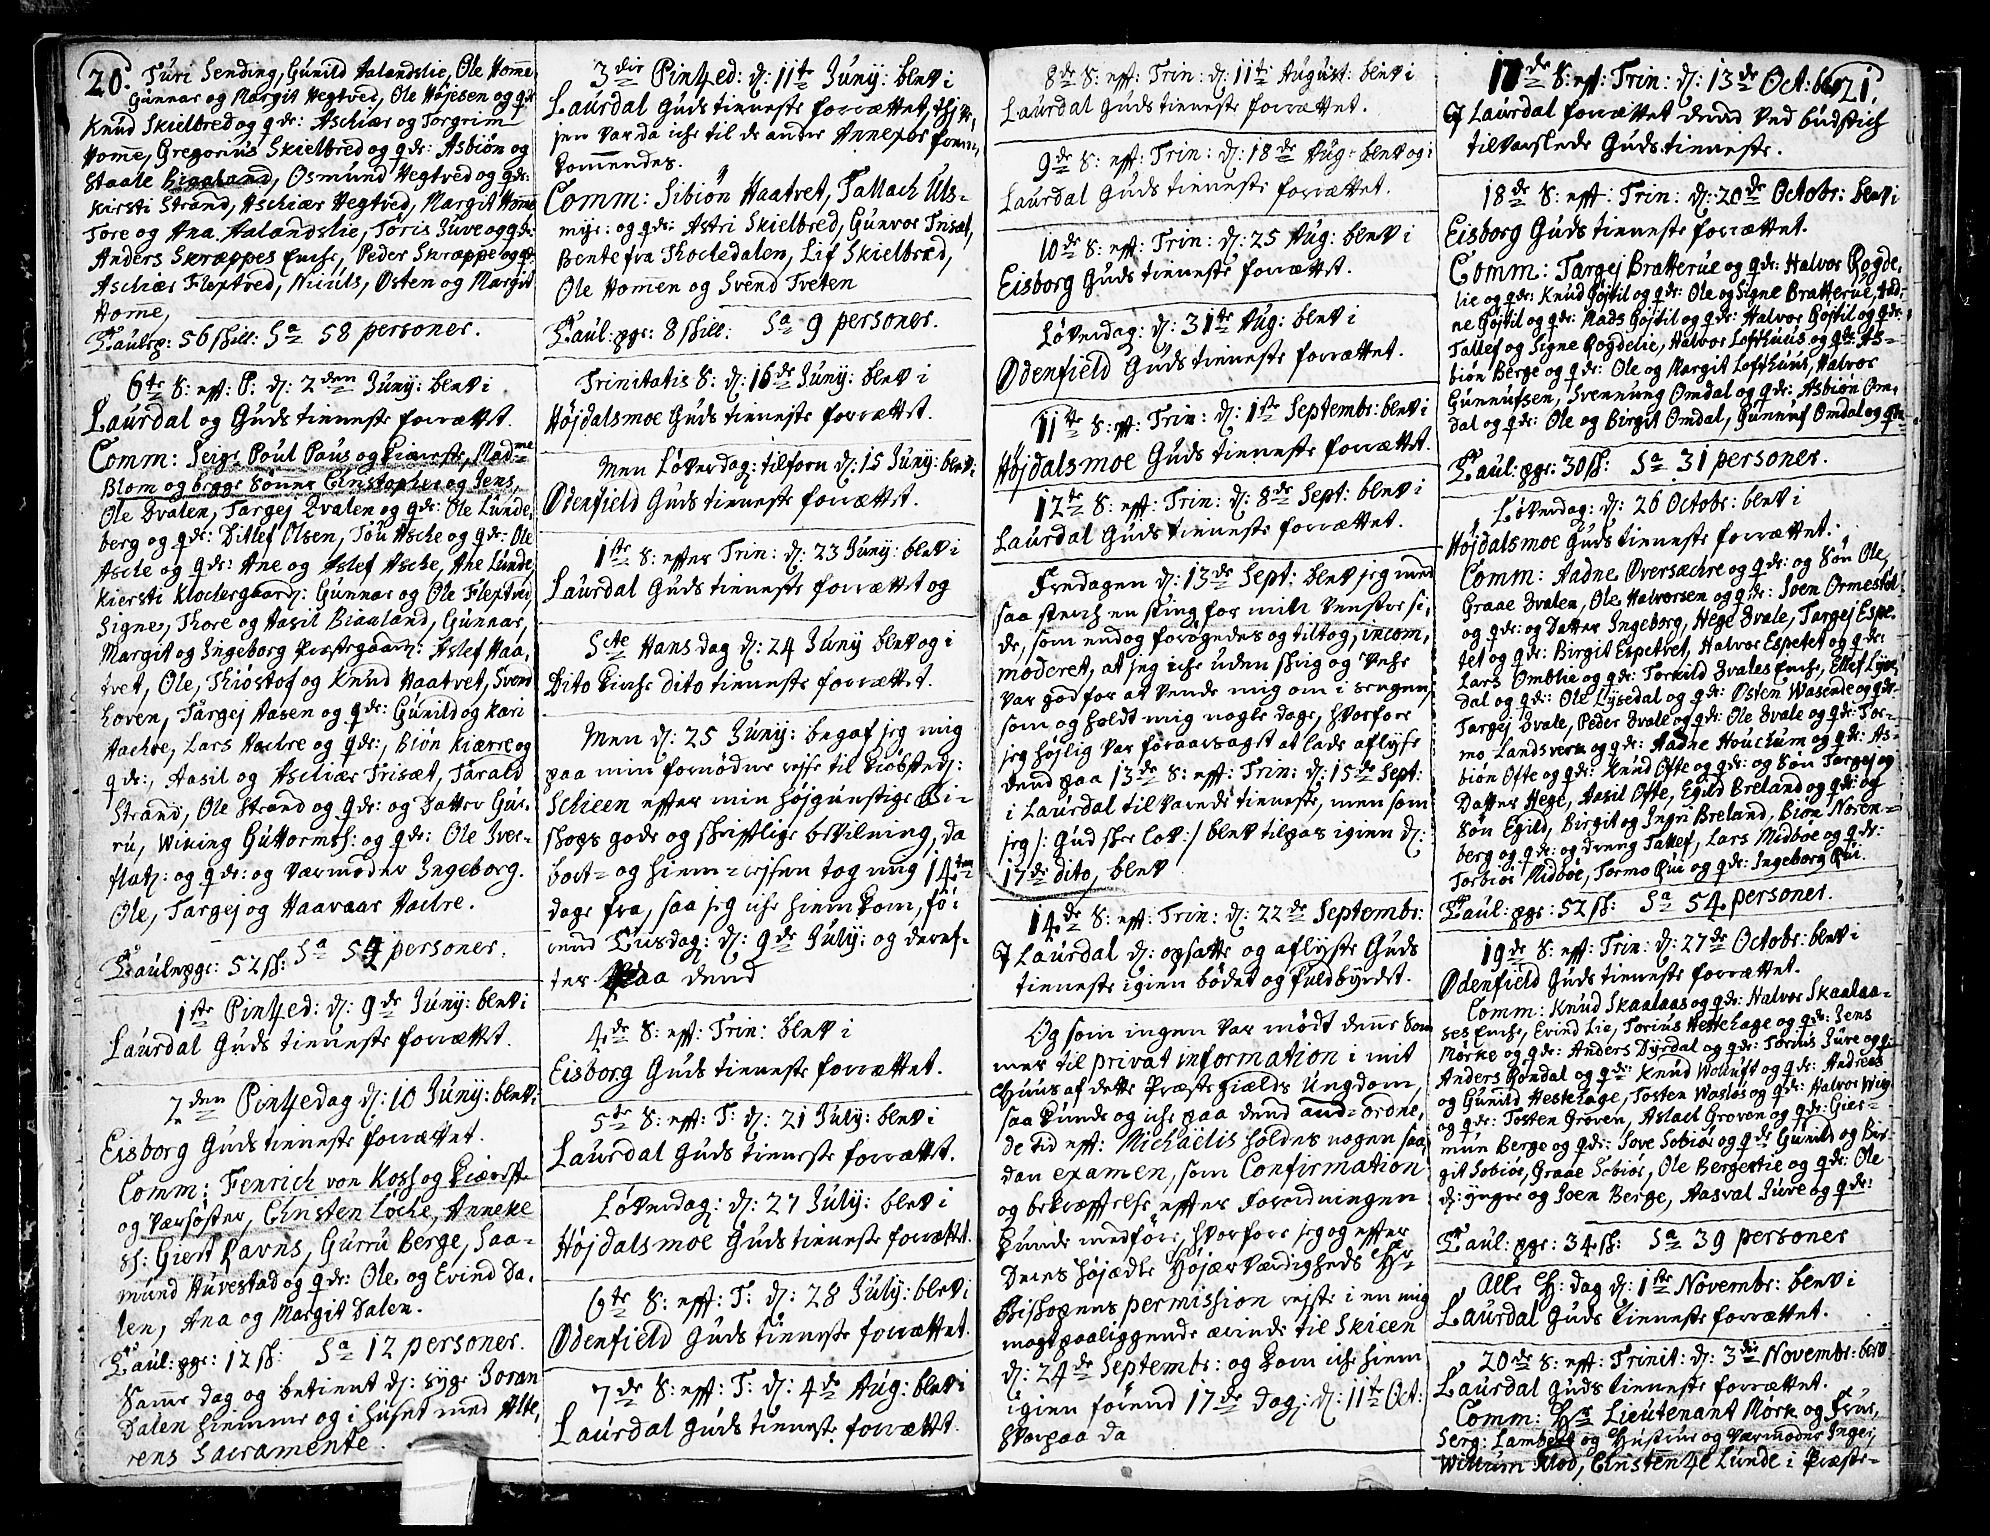 20.
Turi Sending, Gunild Aalandslie, Ole Home,
Gunnar og Margit Hegtved, Ole Højesen og qde
Knud Skielbred og qde: Aschiær og Torgrim
Home, Gregorius Skielbred og qde: Asbiøn og
Staale Biaaland, Osmund Hegtved og qde:
Kirsti Strand, Aschiær Hegtved, Margit Home
Tore og Ana Aalandslie, Toris Juve og qde:
Anders Skræppes Enche, Peder Skræppe og qde
Aschiær Flextved, Niuuls, Østen og Margit
Home,
Taulpg: 56 skill: Sa 58 personer.
6te S: eft: P: d: 2den Juny: blev i
Laurdal og Guds tienneste forrættet.
Comm: Seigr Poul Paus og Kiæreste, Madme
Blom og begge Sønner Christopher og Jens,
Ole Dvalen, Targej Dvalen og qde: Ole Lunde,
berg og qde: Ditlef Olsen, Tou Asche og qde: Ole
Asche og qde: Ane og Aslef Asche, Ane Lunde,
Kiersti Klochergaard: Gunnar og Ole Flextved,
Signe, Thore og Aasil Biaaland, Gunnar,
Margit og Ingeborg Præstegaard: Aslef Haa,
tvet, Ole, Thiostof og Knud Haatvet, Svend
hoven, Targej Aasen og qde: Gunild og Kari
Aachre, Lars Aachre og qde:, Biøn Kiærre og
qde:, Aasil og Aschiær Trisæt, Tarald
Strand, Ole Strand og qde: og Datter Gur,
ru, Wiking Guttormss: og qde: Ole Iver-
flat: og qde: og Værmoder Ingeborg.
Ole, Targej og Haavaar Aachre.
Taulepge: 52 sk: Sa 54 personer.
1ste Pintzed: d: 9de Juny: blev i
Laurdal Guds tienneste forrættet.
2den Pintzedag d: 10 Juny: blev i
Eisborg Guds tienneste forrættet.
Comm: Fenrich von Koss og Kiæreste
og Værsøster, Christen Loche, Anneke
Giert Ravns, Gurru Berge, Saa-
mund Huvestad og qde: Ole og Evind Da,
len, Ana og Margit Dalen.
Taul: pge: 12 sk: Sa 12 personer.
Samme dag og betient d: syge Joran
Dalen hiemme og i huset med Alte,
rens Sacramente.
3die Pintzed: d: 11te Juny: blev i
Laurdal Guds tienneste forrættet,
sen var da iche til de andre Annexer frem,
kommendes.
Comm: Sibiøn Haatvet, Tallach Uls-
myr: og qde: Astri Skielbred, Gunvor Trisæt,
Bente fra Thochedalen, Lif Skielbred,
Ole Homen og Svend Tveten
Taul: pge: 8 skill: Sa 9 personer.
Trinitatis S: d: 16de Juny: blev i
Højdalsmoe Guds tienneste forrættet.
Men Løverdag: tilforn d: 15 Juny: blev i
Ødenfield Guds tienneste forrættet.
1ste S: efter Trin: d: 23 Juny: blev i
Laurdal Guds tienneste forrættet og
Scte Hans dag d: 24 Juny blev og i
Dito Kirche dito tienneste forrættet.
Men d: 25 Juny: begaf jeg mig
paa min fornødne rejse til Kiøbsted:
Schieen efter min højgunstige Bi-
skops gode og skriftlige bevilning, da
bort- og hiem-rejsen tog mig 14ten
dage fra, saa jeg iche hiem kom, fø-
rend Tirsdag: d: 9de July: og deref-
ter paa dend
4de S: eft: Trin: blev i
Eisborg Guds tienneste forrættet.
5de S: eft: T: d: 21 July: blev i
Laurdal Guds tienneste forrættet.
Løverdag: d: 27 July: blev i
Højdalsmoe Guds tienneste forrættet.
6te S: eft: T: d: 28 July: blev i
Ødenfield Guds tienneste forrættet.
7de S: eft: T: d: 4de Aug: blev i
Laurdal Guds tienneste forrættet.
8de S: eft: Trin: d: 11te August: blev i
Laurdal Guds tienneste forrættet.
9de S: eft: Trin: d: 18de Aug: blev og i
Laurdal Guds tienneste forrættet.
10de S: eft: Trin: d: 25 Aug: blev i
Eisborg Guds tienneste forrættet.
Løverdag: d: 31te Aug: blev i
Ødenfield Guds tienneste forrættet.
11te S: eft: Trin: d: 1ste Septembr: blev i
Højdalsmoe Guds tienneste forrættet.
12te S: eft: Trin: d: 8de Sept: blev i
Laurdal Guds tienneste forrættet.
Fredagen d: 13de Sept: blev jeg med
saa sterch en sting for min venstre si,
de, som endog forøgedes og tiltog, incom,
moderet, at jeg iche uden skrig og
var god for at vende mig om i sengen,
som og holdt mig nogle dage, hvorfore
jeg højlig var foraarsaget at lade aflyse
dend paa 13de S: eft: Trin: d: 15de Sept:
i Laurdal tilvarede tieneste, men som
jeg /: Gud skee lov:/ blev tilpas igien d:
17de dito, blev
14de S: eft: Trin: d: 22de Septembr:
I Laurdal d: opsatte og aflyste Guds
tienneste igien bødet og fuldbyrdet.
Og som ingen var mødt denne Som
mer til privat information i mit
Huus af dette Præstegields Ungdom,
saa kunde og iche paa dend and-ordne,
de tid eft: Michaelis holdes nogen saa
dan examen, som Confirmation
og bekræftelse efter forordningen
kunde medføre, hvorfore jeg og efter
Deres højædle Højærværdigheds Hr
Biskopens permission rejste i en mig
magtpaaliggende ærinde til Skieen
d: 24de Septembr: og kom iche hiem
igien førend 17de dag: d: 11te Oct:
hvorpaa da
21.
17de S: eft: Trin: d: 13de Octobr:
I Laurdal forrættet dend ved budstich
tilvarslede Guds tienneste.
18de S: eft: Trin: d: 20de Octobr: blev i
Eisborg Guds tienneste forrættet.
Comm: Targej Bratterue og qde: Halvor Rogde,
lie og qde: Knud Gøjtil og qde: Ole og Signe Bratterue, And:
ne Gøjtil og qde: Mads Gøjtil og qde: Halvor Gøjtil og qde:
Tallef og Signe Rogdelie, Halvor Lofthuus og qde: As-
biøn Berge og qde: Ole og Margit Lofthuus, Halvor
Gunnufsen, Svennung Omdal og qde: Asbiøn Om,
dal og qde: Ole og Birgit Omdal, Gunnuf Omdal og qde:
Taul: pge: 30 sk: Sa 31 personer.
Løverdag: d: 26 Octobr: blev i
Højdalsmoe Guds tienneste forrættet.
Comm: Aadne Oversachre og qde: og Søn Ole,
Graae Dvalen, Ole Halvorsen og qde: Joen Ormestøl
og qde: og Datter Ingeborg, Hege Dvale, Targej Espe,
tet og qde: Birgit Espetvet, Halvor Espetet og qde:
Lars Omblie og qde: Torkild Dvales Enche, Ellef Lyse,
dal og qde: Ole Lysedal og qde: Østen Wasende og qde:
Targej Dvale, Peder Dvale og qde: Ole Dvale og qde: Tor-
mo Landsverk og qde: Aadne Houchum og qde: As-
biøn Ofte og qde: Knud Ofte og qde: og Søn Targej og
Datter Hege, Aasil Ofte, Egild Breland og qde: og
Søn Egild, Birgit og Ingri Breland, Biøn Noren-
berg og qde: og dreng Tallef, Lars Midboe og qde:
Torbiør Midboe, Tormo Rui og qde: Ingeborg Rui.
Taul: pge: 52 sk: Sa 54 personer.
19de S: eft: Trin: d: 27de Octobr: blev i
Ødenfield Guds tienneste forrættet.
Comm: Knud Skaalaas og qde: Halvor Skaalaa-
ses Enche, Evind Lie, Torius Hettehage og qde: Jens
Mørke og qde: Anders Dyrdal og qde: Torius Juve og q:
Anders Rondal og qde: Knud Wouuft og qde: Andreas
og Gunild Heskehage, Tosten Wasløs og qde: Halvor Wug
og qde: Tosten Groven, Aslach Groven og qde: Gier-
mun Berge og qde: Tove Sobiør og qde: Gunild og Bir-
git Sobiør, Graae Sobiør, Ole Bergestie og qde: Ole
d: ynger og Joen Berge, Aasval Juve og qde:
Taul: pge: 34 sk: Sa 39 personer
Alle H: dag d: 1ste Novembr: blev i
Laurdal Guds tienneste forrættet.
20de S: eft: Trinit: d: 3die Novembr: blev
Laurdal Guds tienneste forrættet.
Comm: Hr Lieutenant Mørk og Frue,
Serg: Lambert og Hustrue og Værmoder Inger,
Willum Klod, Christentze Lunde i Præste-